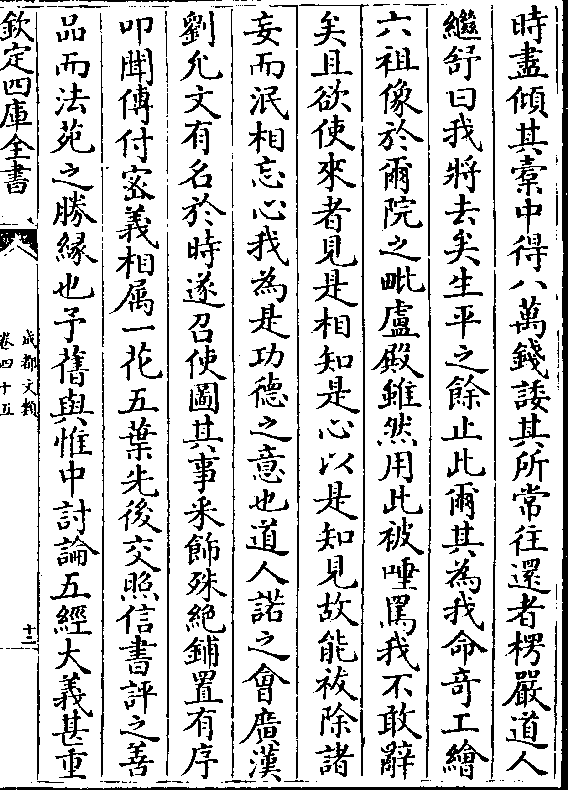 時盡傾其槖中得八萬錢諉其所常往還者楞嚴道人
繼舒曰我將去矣生平之餘止此爾其為我命奇工繪
六祖像於爾院之毗盧殿雖然用此被唾罵我不敢辭
矣且欲使來者見是相知是心以是知見故能祓除諸
妄而泯相忘心我為是功德之意也道人諾之會廣漢
劉允文有名於時遂召使圖其事采飾殊絶鋪置有序
叩閽傳付宻義相属一花五葉先後交照信書評之善
品而法苑之勝縁也予舊與惟中討論五經大義甚重
欽定四庫全書
成都文類
卷四十五
十二